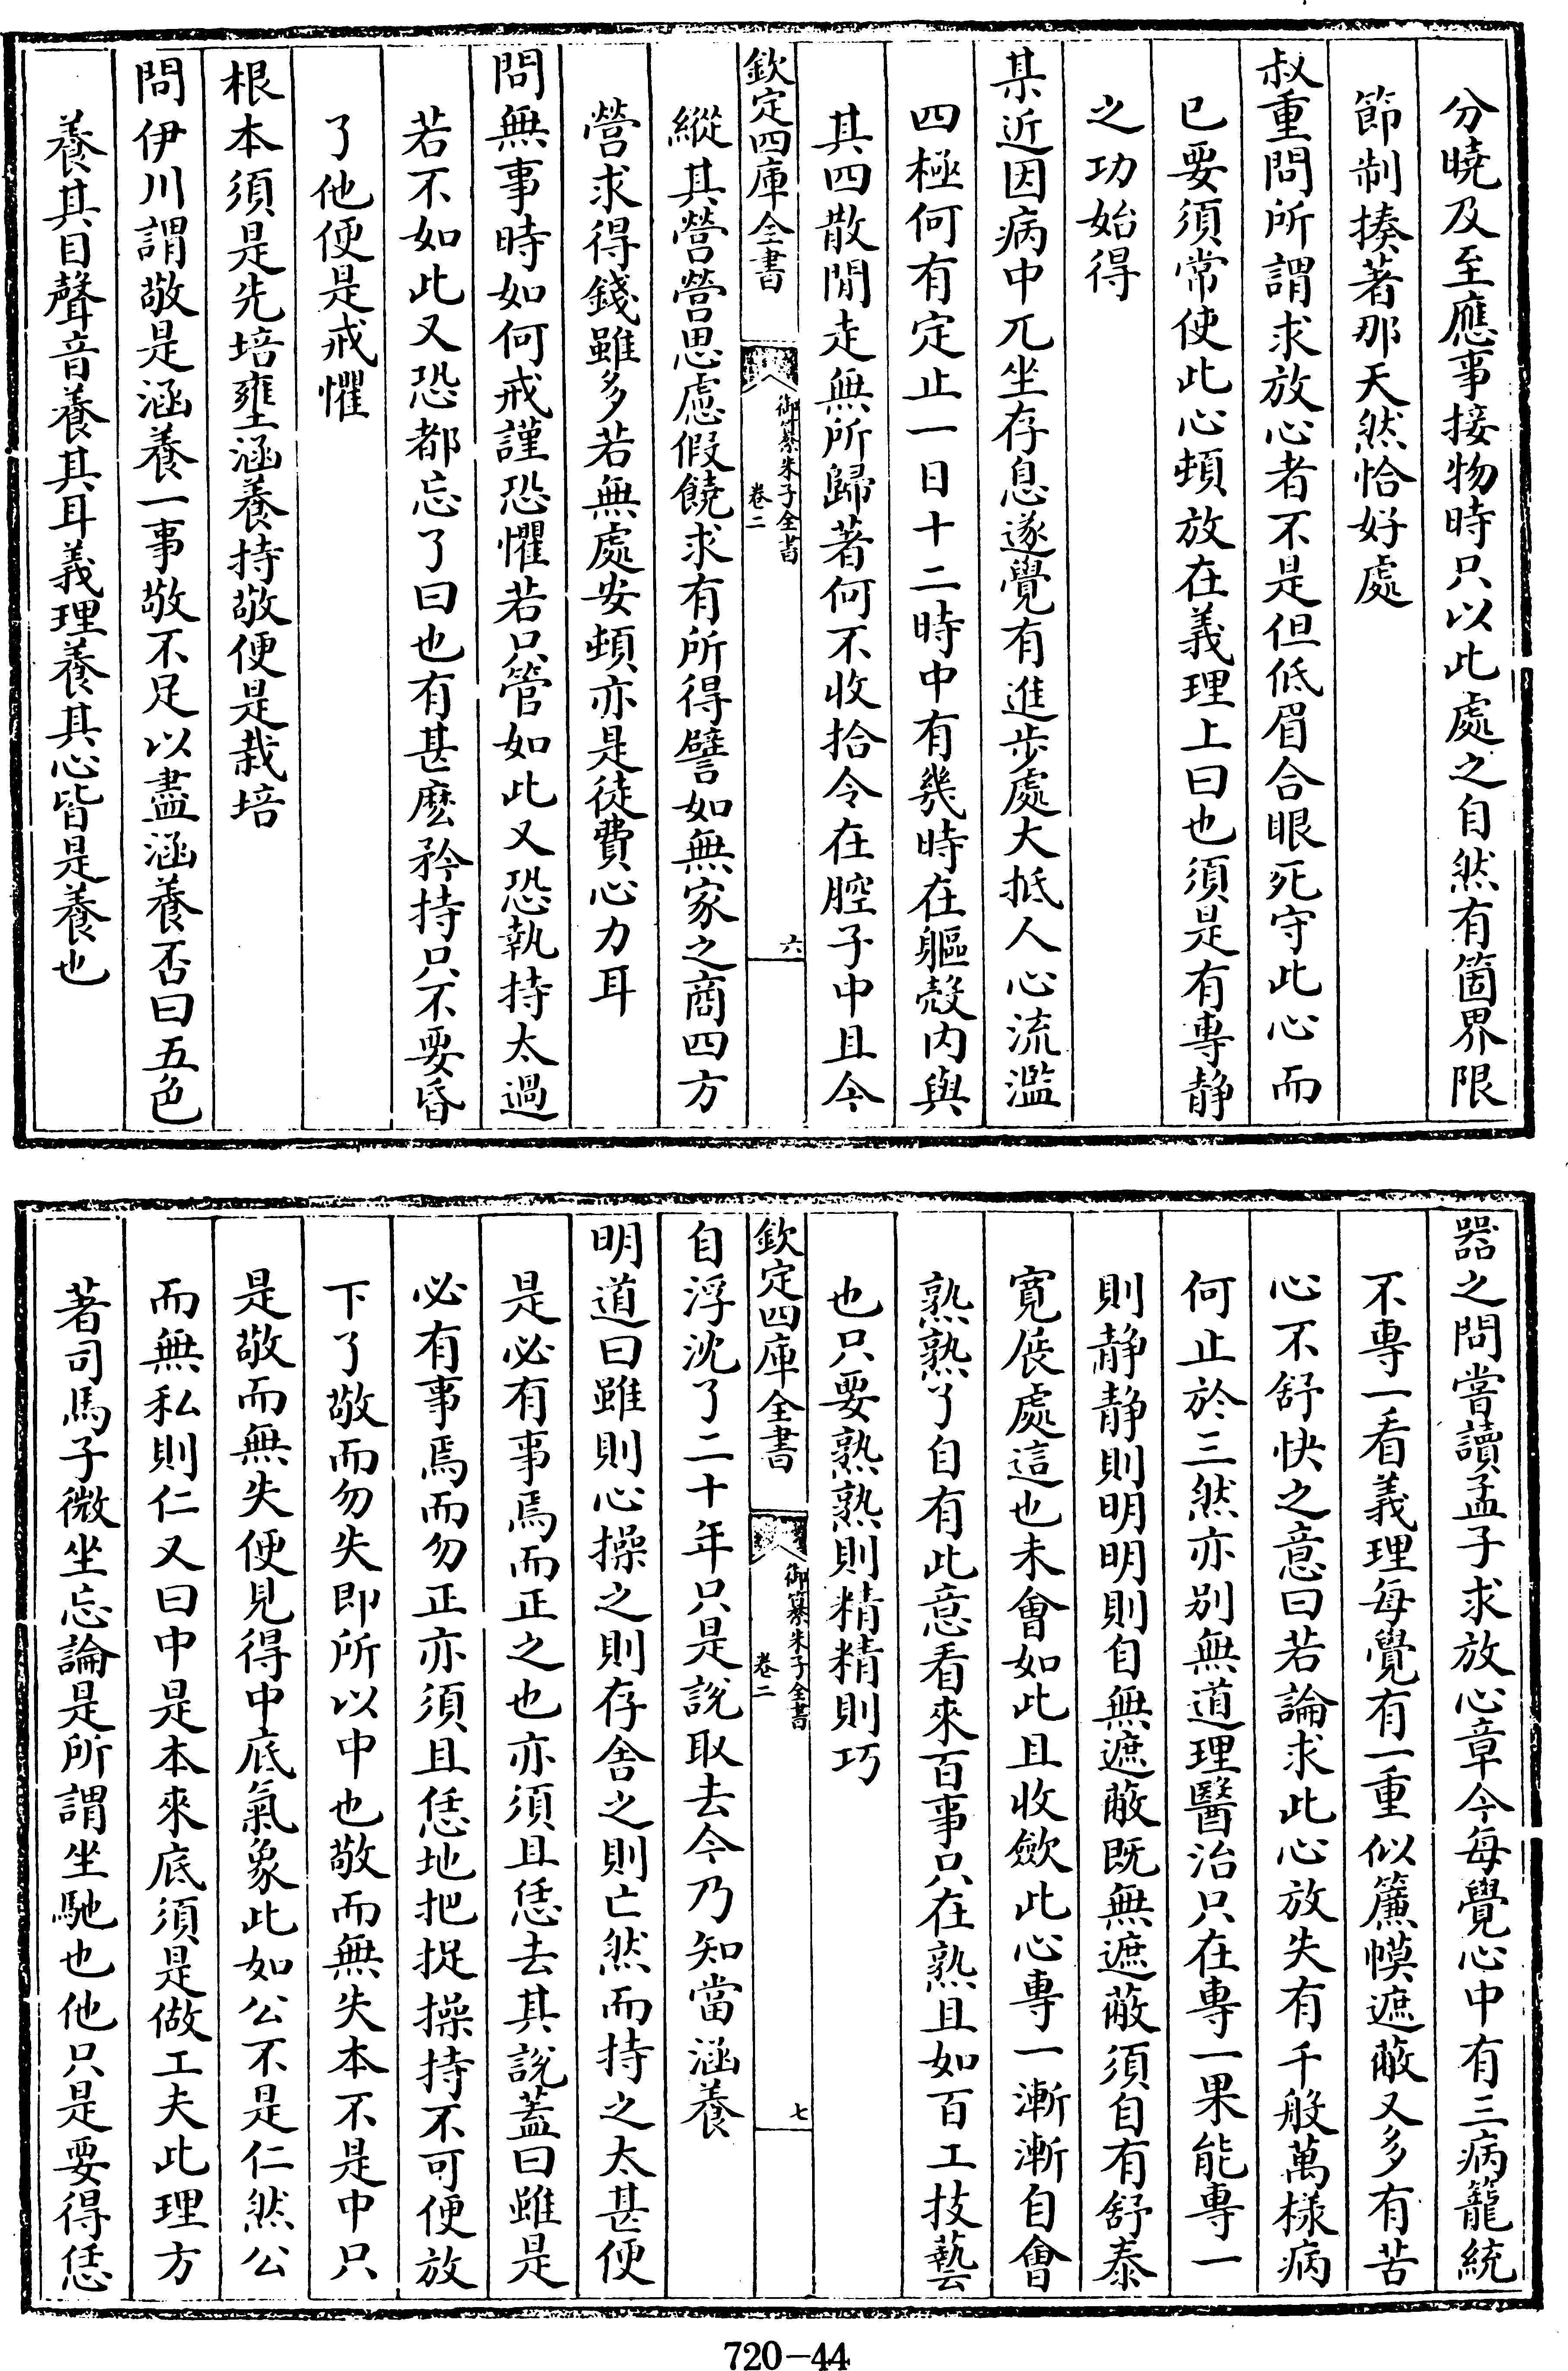 分曉及至應事接物時只以此處之自然有箇界限
節制揍著那天然恰好處
叔重問所謂求放心者不是但低眉合眼死守此心而
已要須常使此心頓放在義理上曰也須是有專靜
之功始得
某近因病中兀坐存息遂覺有進步處大抵人心流濫
四極何有定止一日十二時中有幾時在軀殼內與
其四散閒走無所歸著何不收拾令在腔子中且今
欽定四庫全書
御纂朱子全書
卷二
六
縱其營營思慮假饒求有所得譬如無家之商四方
營求得錢雖多若無處安頓亦是徒費心力耳
問無事時如何戒謹恐懼若只管如此又恐執持太過
若不如此又恐都忘了曰也有甚麽矜持只不要昏
了他便是戒懼
根本須是先培壅涵養持敬便是栽培
問伊川謂敬是涵養一事敬不足以盡涵養否曰五色
養其目聲音養其耳義理養其心皆是養也
器之問嘗讀孟子求放心章今每覺心中有三病籠統
不專一看義理每覺有一重似簾幙遮蔽又多有苦
心不舒快之意曰若論求此心放失有千般萬樣病
何止於三然亦別無道理醫治只在專一果能專一
則靜靜則明明則自無遮蔽既無遮蔽須自有舒泰
寬展處這也未會如此且收歛此心專一漸漸自會
熟熟了自有此意看來百事只在熟且如百工技藝
也只要熟熟則精精則巧
欽定四庫全書
御纂朱子全書
卷二
七
自浮沈了二十年只是說取去今乃知當涵養
明道曰雖則心操之則存舍之則亡然而持之太甚便
是必有事焉而正之也亦須且恁去其說蓋曰雖是
必有事焉而勿正亦須且恁地把捉操持不可便放
下了敬而勿失即所以中也敬而無失本不是中只
是敬而無失便見得中底氣象此如公不是仁然公
而無私則仁又曰中是本來底須是做工夫此理方
著司馬子微坐忘論是所謂坐馳也他只是要得恁
720-44